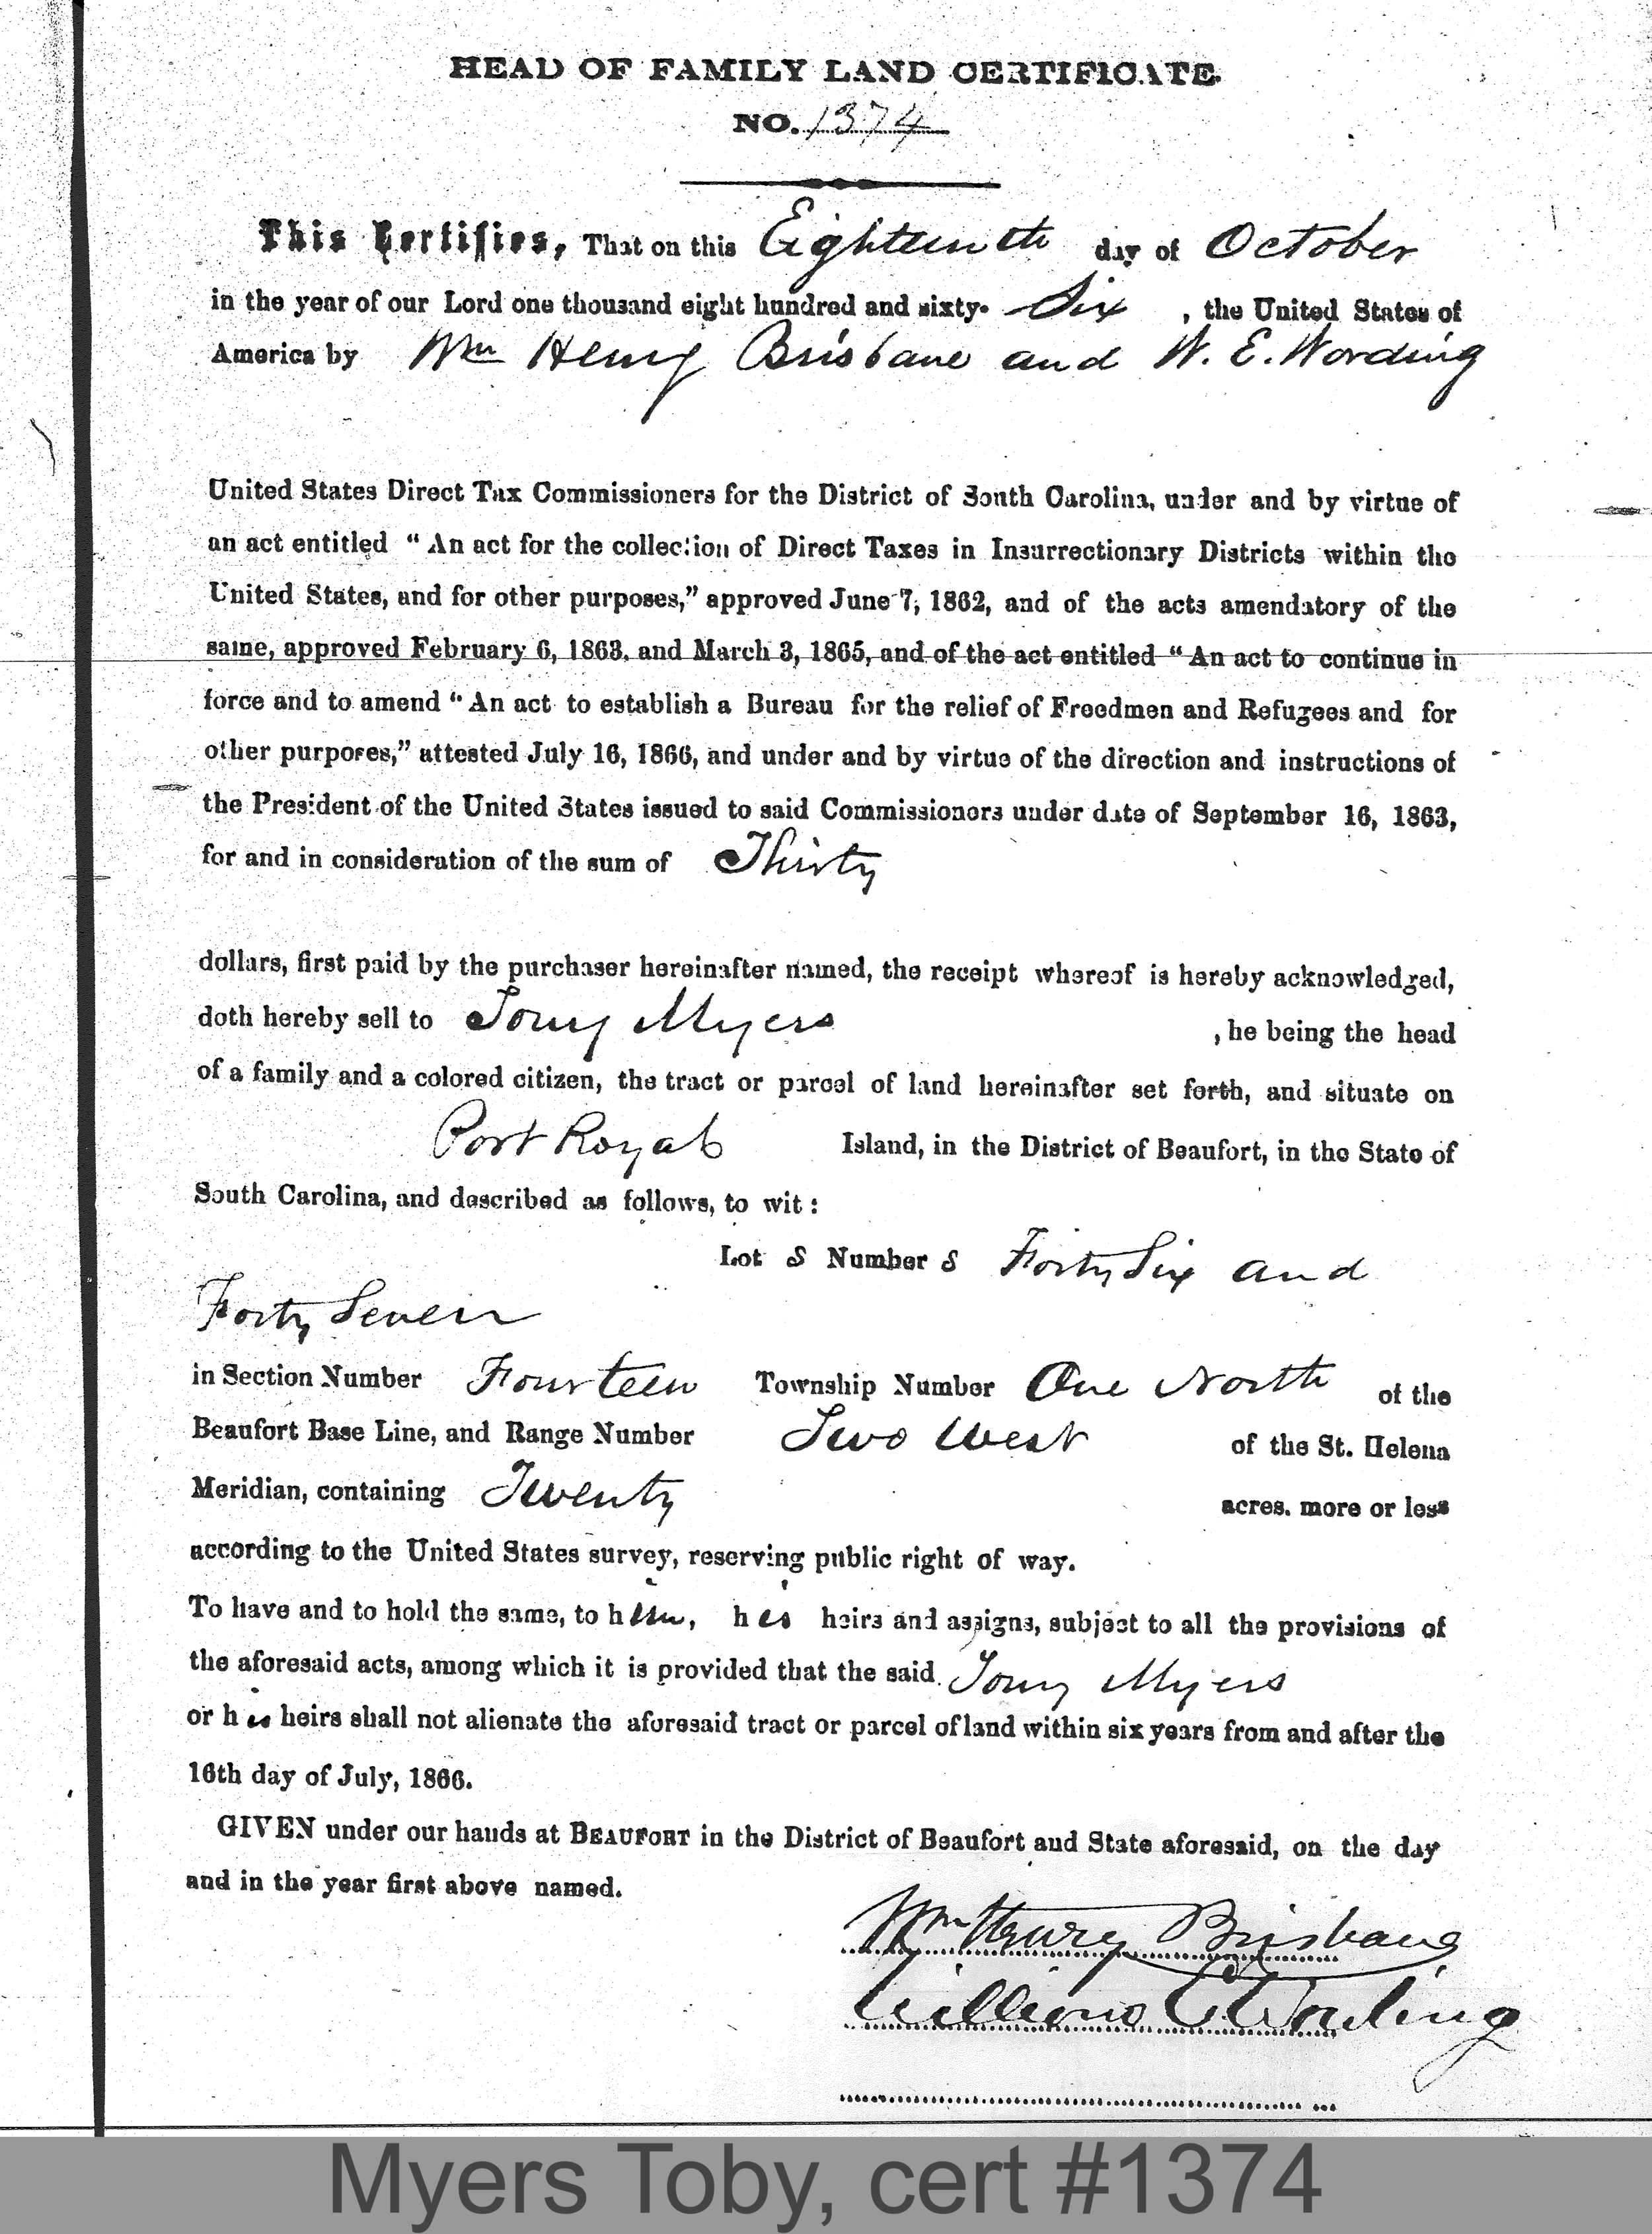 HEAD OF FAMILY LAND CERTIFICATE.
NO. 1374
This Certifies, That on this Eighteenth day of October
in the year of our Lord one thousand eight hundred and sixty- Six , the United States of
America by Wm Henry Brisbane and W. E. Wording
United States Direct Tax Commissioners for the District of South Carolina, under and by virtue of
an act entitled “ An act for the collection of Direct Taxes in Insurrectionary Districts within the
United States, and for other purposes,” approved June 7, 1862, and of the acts amendatory of the
same, approved February 6, 1863, and March 3, 1865, and of the act entitled “ An act to continue in
force and to amend “ An act to establish a Bureau for the relief of Freedmen and Refugees and for
other purposes,” attested July 16, 1866, and under and by virtue of the direction and instructions of
the President of the United States issued to said Commissioners under date of September 16, 1863,
for and in consideration of the sum of Thirty
dollars, first paid by the purchaser hereinafter named, the receipt whereof is hereby acknowledged,
doth hereby sell to Tony Myers , he being the head
of a family and a colored citizen, the tract or parcel of land hereinafter set forth, and situate on
Port Royal Island, in the District of Beaufort, in the State of
South Carolina, and described as follows, to wit :
Lot S Number S Forty Six and
Forty Seven
in Section Number Fourteen Township Number One North of the
Beaufort Base Line, and Range Number Two West of the St. Helena
Meridian, containing Twenty acres. more or less
according to the United States survey, reserving public right of way.
To have and to hold the same, to him, his heirs and assigns, subject to all the provisions of
the aforesaid acts, among which it is provided that the said Tony Myers
or his heirs shall not alienate the aforesaid tract or parcel of land within six years from and after the
16th day of July, 1866.
GIVEN under our hands at BEAUFORT in the District of Beaufort and State aforesaid, on the day
and in the year first above named.
Wm Henry Brisbane
William E Wording
Myers Toby, cert #1374